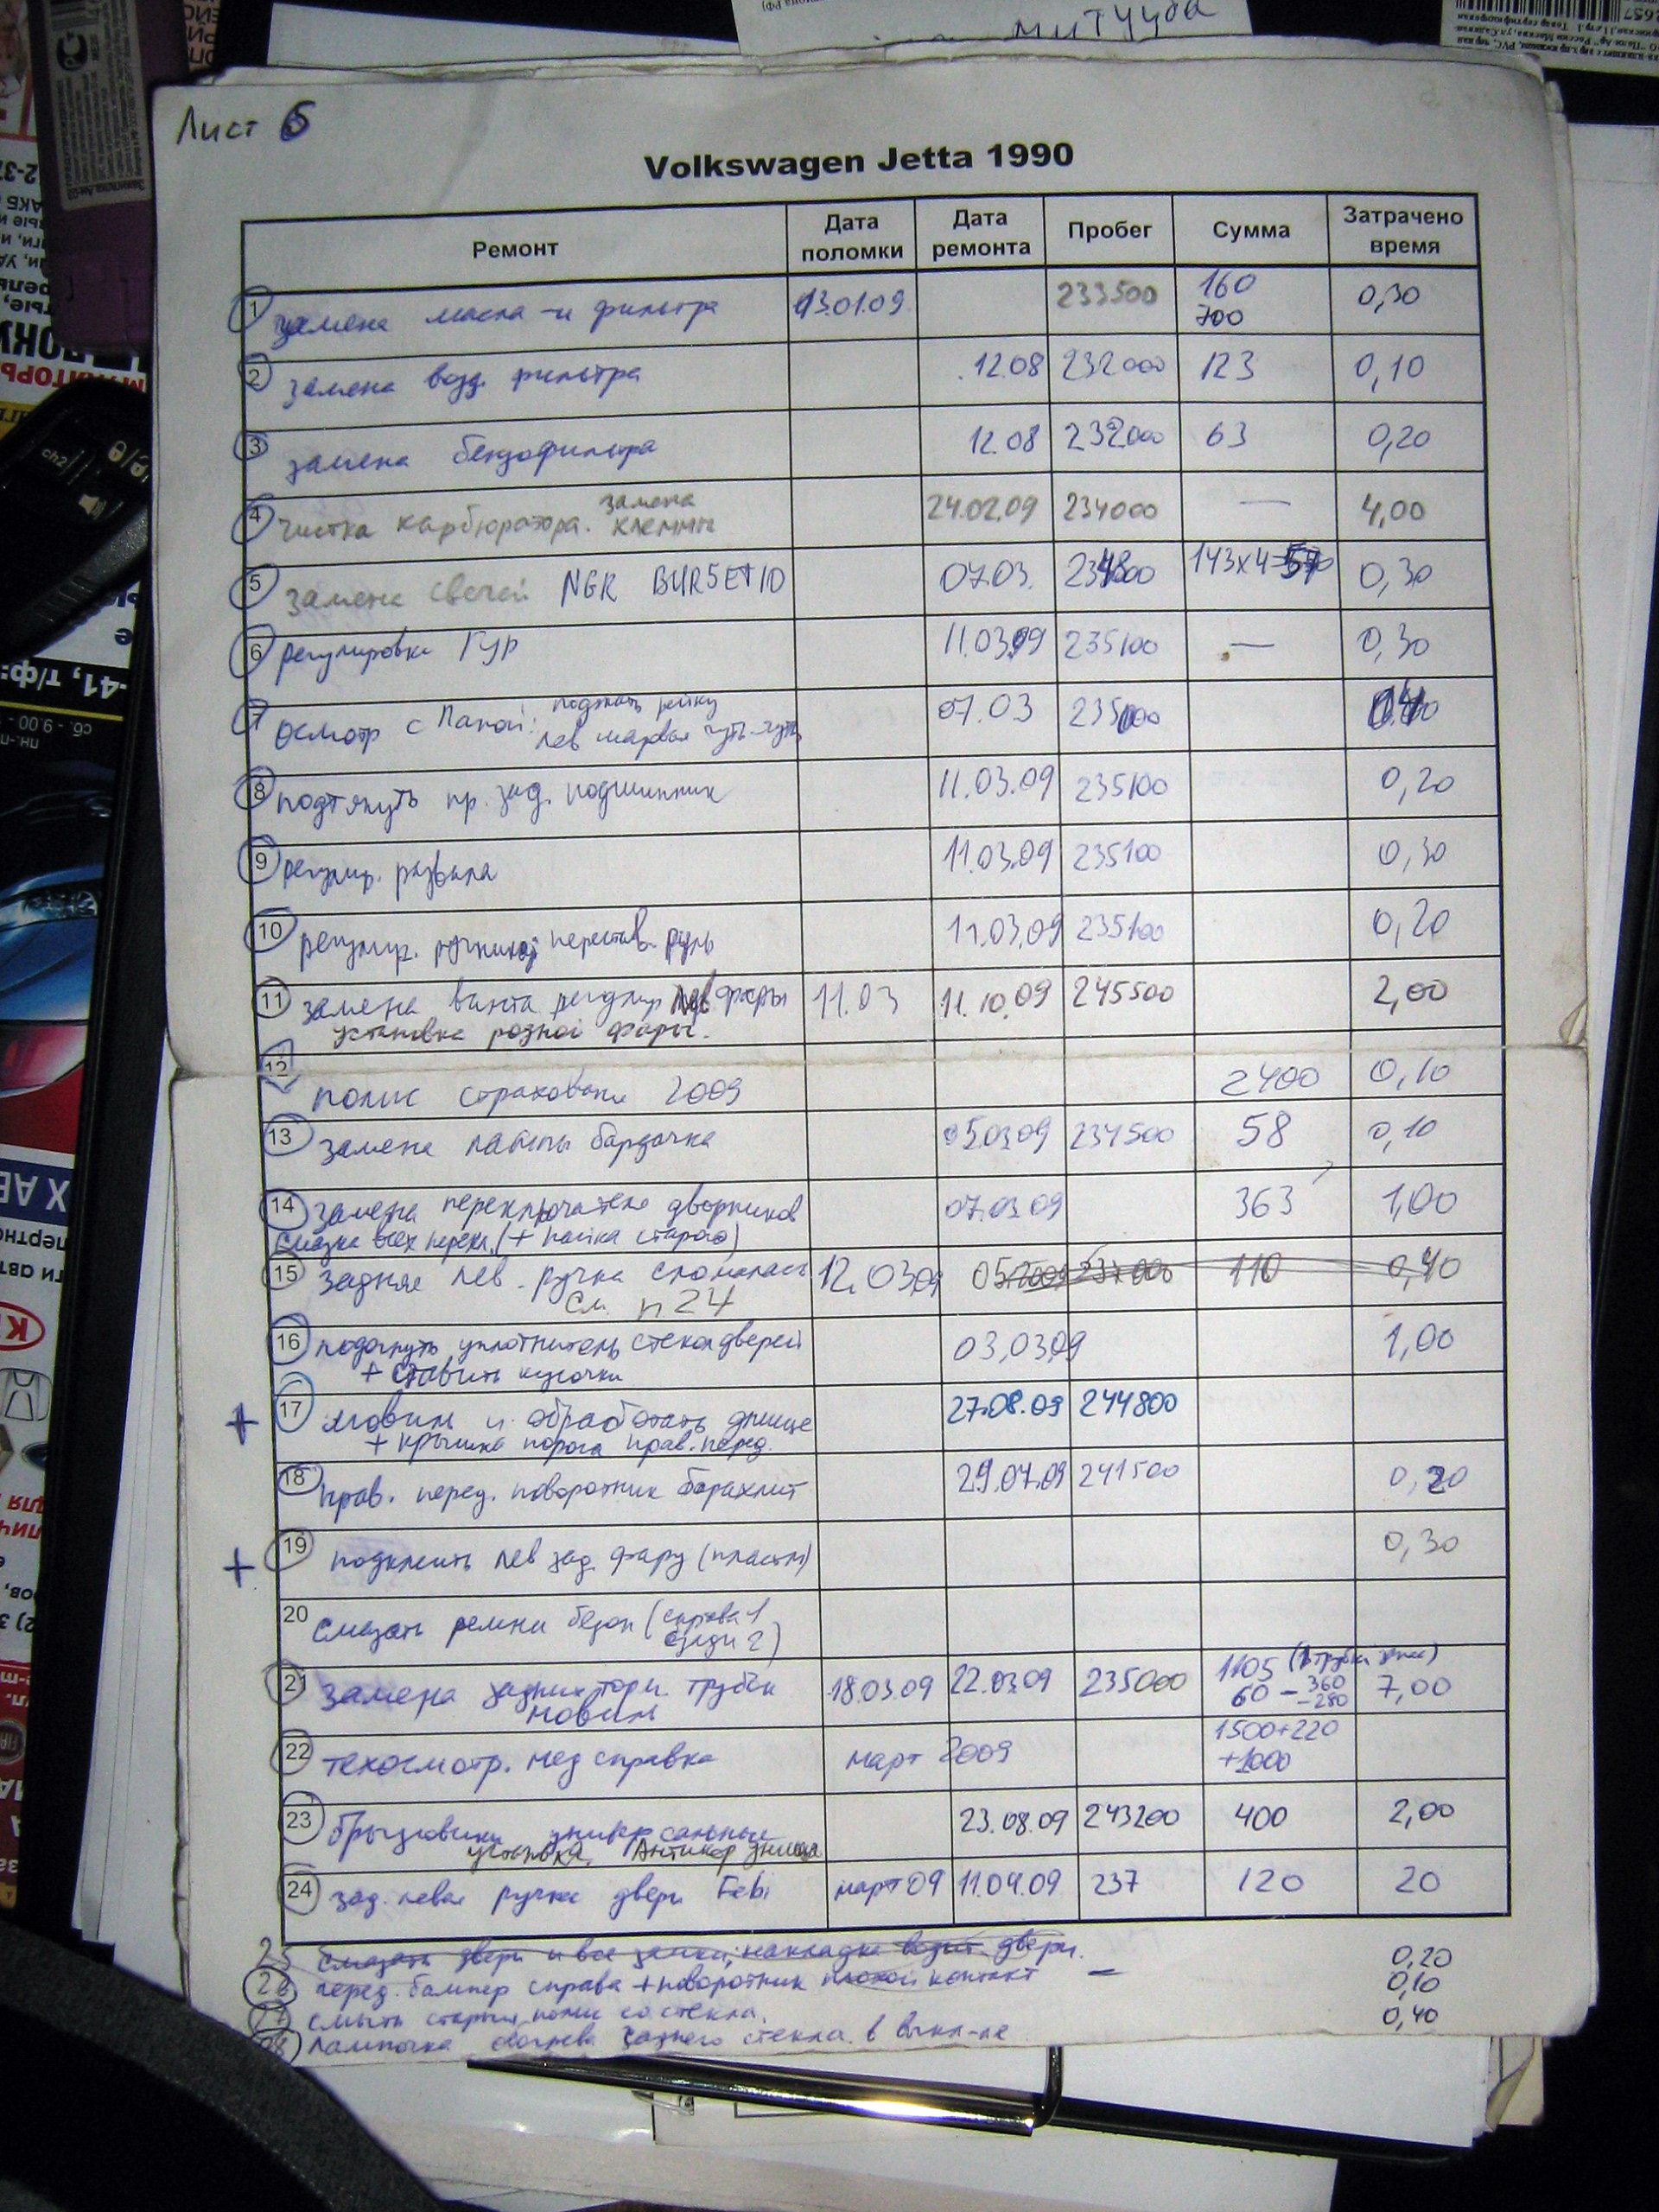 митууба
Лист 6
Volkswagen Jetta 1990
Ремонт Дата поломки Дата ремонта Пробег Сумма Затрачено время
1 замена масла и фильтра 13.01.09 233500 160 700 0,30
2 замена возд. фильтра 12.08 232000 123 0,10
3 замена бензофильтра 12.08 232000 63 0,20
4 чистка карбюратора. замена клеммы 24.02.09 234000 — 4,00
5 замена свечей NGK BUR5ET10 07.03. 143х4 0,30
6 регулировка ГУР 11.03.09 235100 — 0,30
7 осмотр с Папой: поджать рейку 07.03 235000
лев шаровая чуть-чуть
8 подтянуть пр. зад. подшипник 11.03.09 235100 0,20
9 регулир. развала 11.03.09 235100 0,30
10 регулир. ручника, перестав. руль 11.03.09 235100 0,20
11 замена винта регулир лев фары 11.03 11.10.09 245500 2,00
установка родной фары.
12 полис страховани 2009 2400 0,10
13 замена лампы бардачка 05.03.09 234500 58 0,10
14 замена переключателя дворников 07.03.09 363 1,00
смазка всех перекл. (+ пайка старого)
15 задняя лев. ручка сломалась 12.03.09 05.2009 237000 110 0,40
см. п 24
16 подогнуть уплотнитель стекол дверей 03.03.09 1,00
+ ставить кусочки
+ 17 и обработать днище 27.08.09 244800
+ крышка порога прав. перед.
18 прав. перед. поворотник барахлит 29.07.09 241500 0,20
+ 19 подклеить лев зад. фару (пластм) 0,30
20 смазать ремни безоп (справа 1
сзади 2)
21 замена задних торм. трубок 18.03.09 22.03.09 235000 1105 7,00
новым 60 – 360
– 280
22 техосмотр. мед справка март 2009 1500+220
+1000
23 Брызговики универсальные 23.08.09 243200 400 2,00
установка, Антикор днища
24 зад. левая ручка двери Febi март 09 11.04.09 237 120 20
25 смазать двери и все замки, накладка водит. двери. 0,20
26 перед. бампер справа + поворотник плохой контакт — 0,10
27 смыть старый полис со стекла. 0,40
28 Лампочка обогрева заднего стекла в выкл-ле